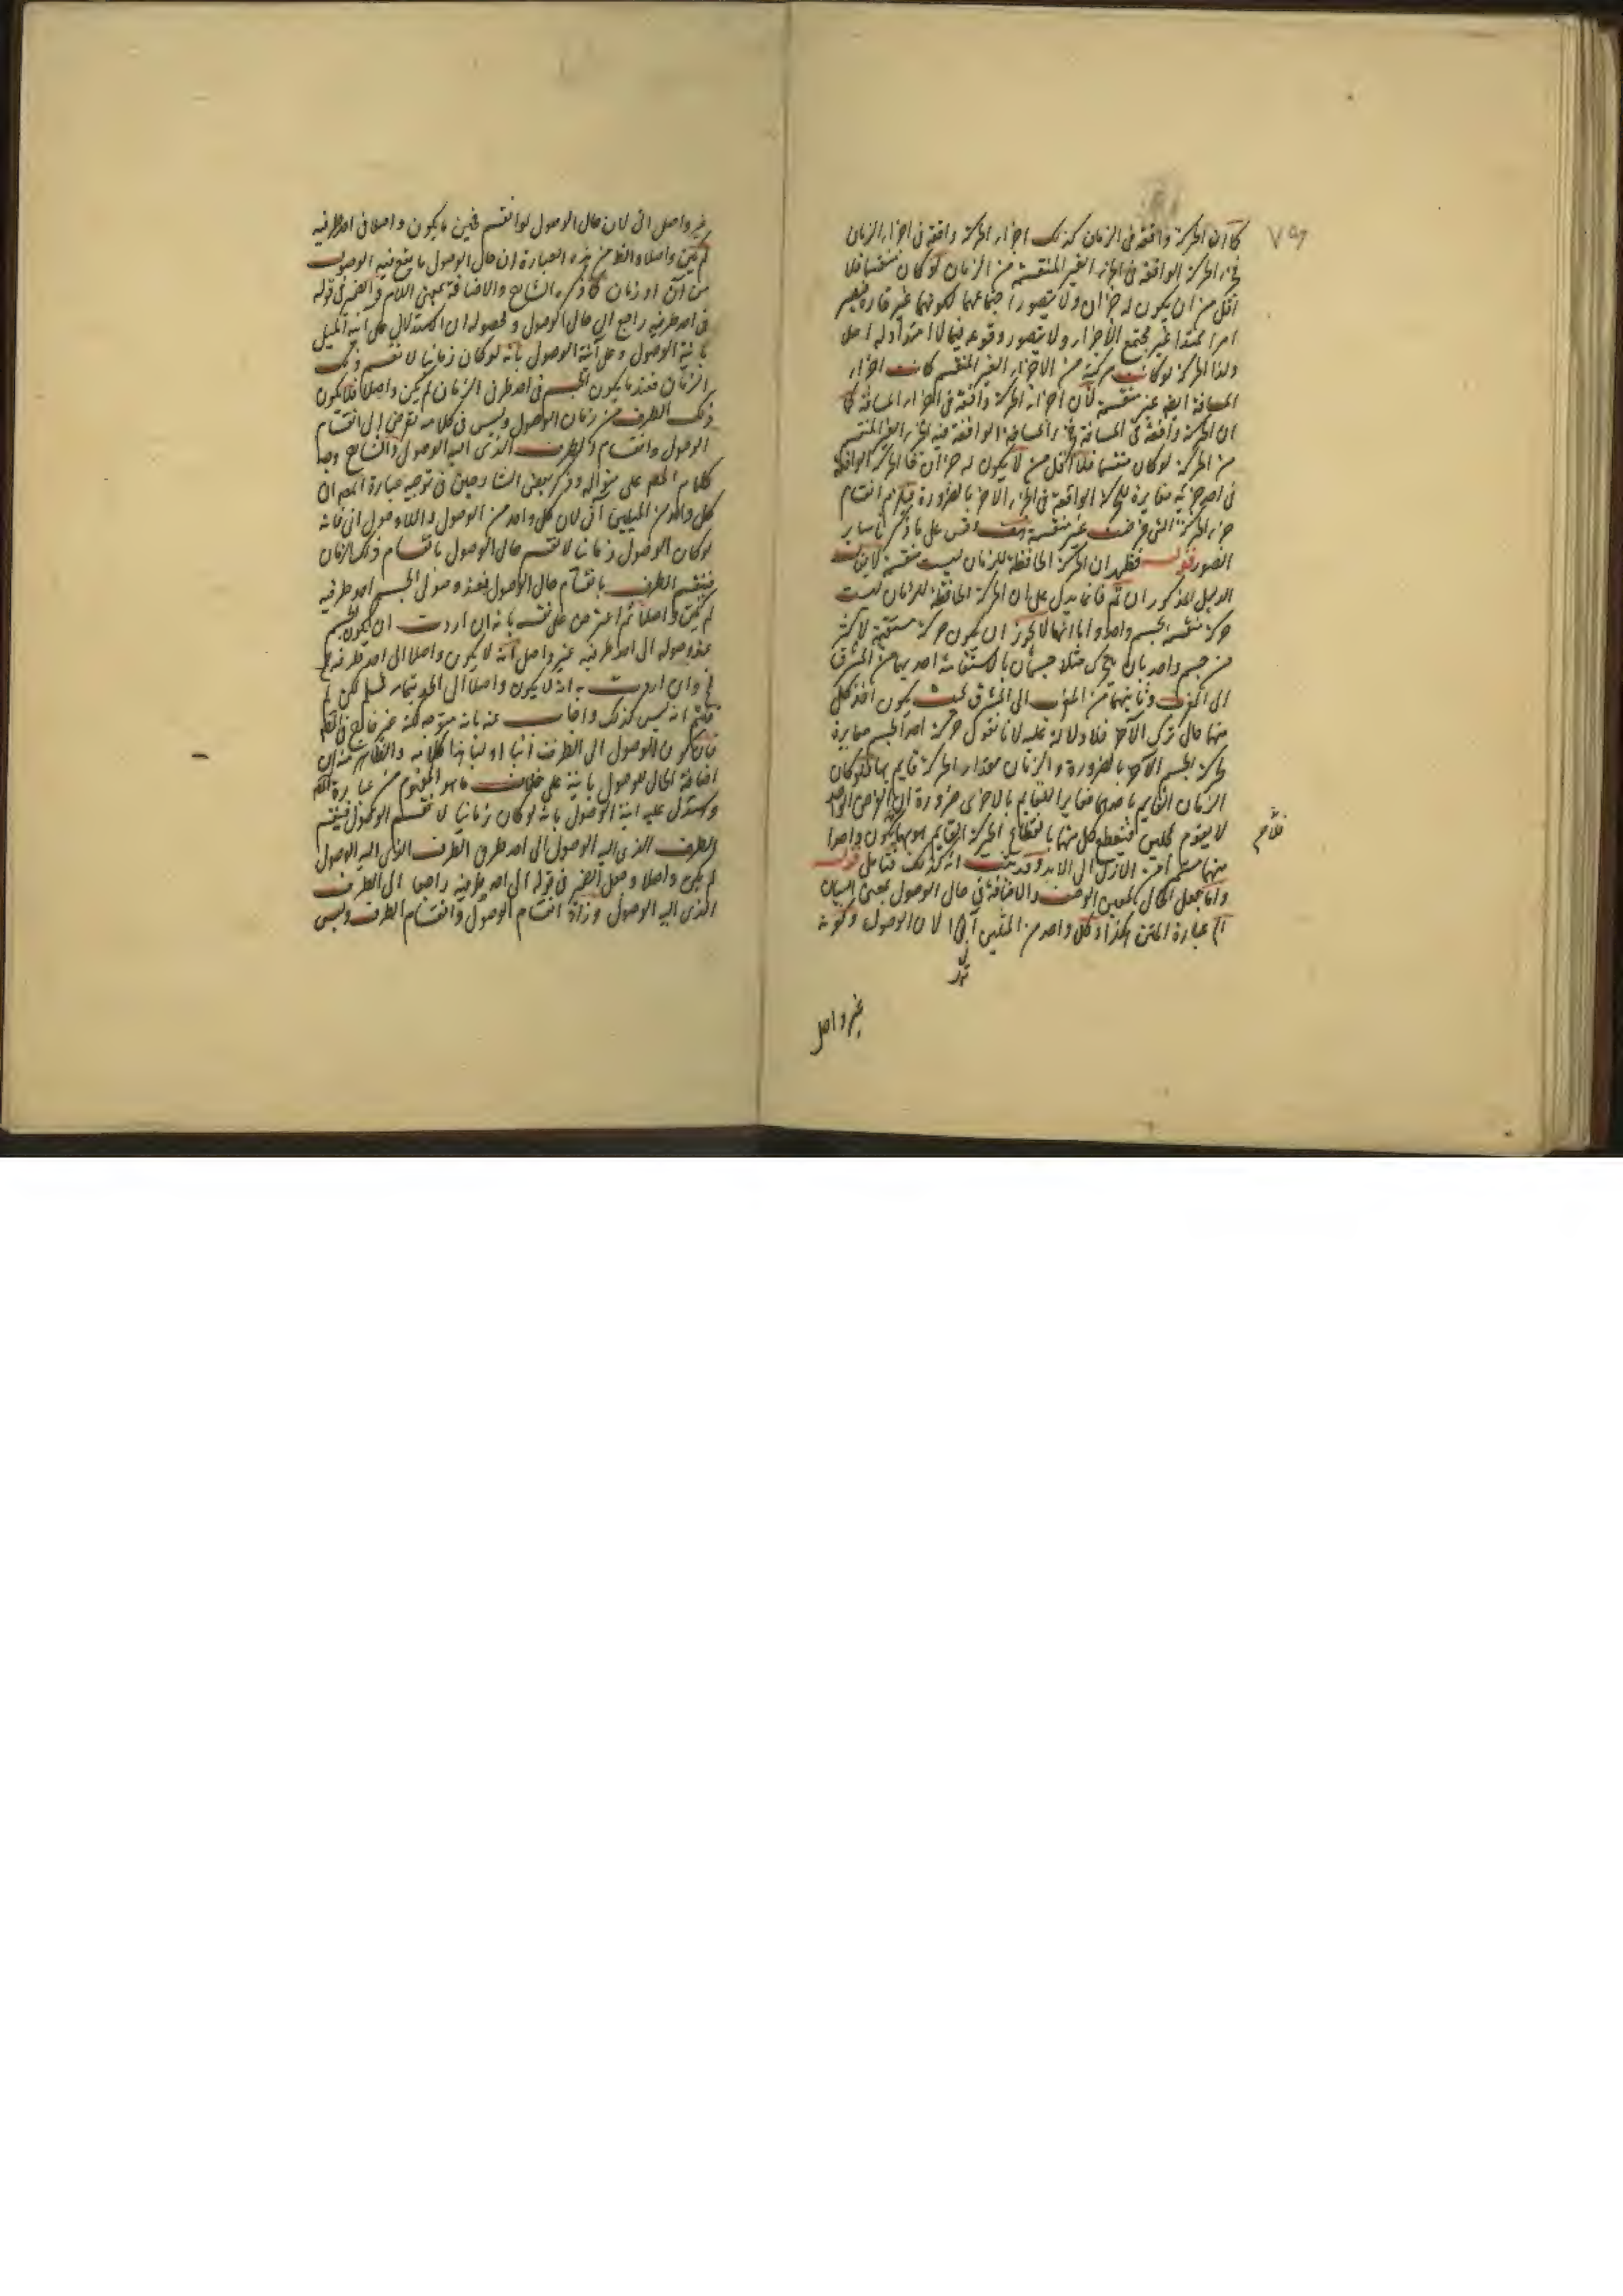 ٧٩
كما ان الحركة واقعة فى الزمان كذلك اجزاء الحركة واقعة فى اجزاء الزمان
فجزء الحركة الواقعة فى الجزء الغير المنقسم من الزمان لو كان منقسما فلا
اقل من ان يكون له جزءان ولا يتصور اجتماعهما لكونها غير قارة فيصير
امرا ممتدا غير مجتمع الاجزاء ولا يتصور وقوعه فيما لا امتداد له اصلا
وكذا الحركة لو كانت مركبة من الاجزاء الغير المنقسم كانت اجزاء
المسافة ايضا غير منقسمة لان اجزاء الحركة واقعة فى اجزاء المسافة كما
ان الحركة واقعة فى المسافة فجزء المسافة الواقعة فيه الجزء الغير المنقسم
من الحركة لو كان منقسما فلا اقل من ان يكون له جزءان فالحركة الواقعة
فى احد جزئيه مغايرة للحركة الواقعة فى الجزء الآخر بالضرورة فيلزم انقسام
جزء الحركة التى فرضت غير منقسمة وقس على ما ذكرنا سائر
الصور قوله فظهر ان الحركة الحافظة للزمان ليست مستقيمة
الدليل المذكور ان تم فانما يدل على ان الحركة الحافظة للزمان ليست
حركة مستقيمة لجسم واحد واما انها لا يجوز ان يكون حركة مستقيمة لاكثر
من جسم واحد بان يتحرك مثلا جسمان بالاستقامة احدهما من المشرق
الى المغرب وثانيهما من المغرب الى المشرق بحيث يكون اخذ كل
منهما حال ترك الآخر فلا دلالة عليه لانا نقول حركة احد الجسم مغايرة
لحركة الجسم الآخر بالضرورة والزمان مقدار الحركة قايم بها فكان
الزمان القايم باحدهما مغايرا للقايم بالاخرى ضرورة ان العرض الواحد
لا يقوم بمحلين فينقطع كل منهما بانقطاع الحركة القايم هو بها فلا يكون واحدا
منهما مستمرا من الازل الى الابد وقد ثبت انه كذلك فتامل قوله
وانما جعل الحال بمعنى الوصف والاضافة فى حال الوصول بمعنى البيان
عبارة المتن هكذا وكل واحد من الميلين آنى لان الوصول وكونه
غير واصل
غير واصل آنى لان حال الوصول لو انقسم فحين ما يكون واصلا فى احد طرفيه
لم يكن واصلا والظاهر من هذه العبارة ان حال الوصول ما يقع فيه الوصول
من آن او زمان كما ذكره الشارح والاضافة بمعنى اللام والضمير فى قوله
فى احد طرفيه راجع الى حال الوصول ومحصوله ان استدلال على آنية الميل
بآنية الوصول وعلى آنية الوصول بانه لو كان زمانيا لانقسم ذلك
الزمان فعند ما يكون الجسم فى احد طرفى الزمان لم يكن واصلا فلا يكون
ذلك الطرف من زمان الوصول وليس فى كلامه تعرض الى انقسام
الوصول وانقسام الطرف الذى اليه الوصول والشارح وجه
كلام المصنف على منواله وذكر بعض الشارحين فى توجيه عبارة المصنف ان
كل واحد من الميلين آنى لان كل واحد من الوصول واللاوصول آنى فانه
لو كان الوصول زمانيا لانقسم حال الوصول بانقسام ذلك الزمان
فينقسم الطرف بانقسام حال الوصول فعند وصول الجسم احد طرفيه
لم يكن واصلا ثم اعترض على نفسه بانه ان اردت ان يكون الجسم
عند وصوله الى احد طرفيه غير واصل انه لا يكون واصلا الى احد طرفيه
وان اردت به انه لا يكون واصلا الى الحد بتمامه فمسلم لكن لم
قلتم انه ليس كذلك واجاب عنه بانه
فان كون الوصول الى الطرف آنيا كلامه والظاهر منه ان
اضافة الحال للوصول بيانية على خلاف ما هو المفهوم من عبارة المصنف
واستدل على آنية الوصول بانه لو كان زمانيا لانقسم الوصول فينقسم
الطرف الذى اليه الوصول الى احد طرفى الطرف الذى اليه الوصول
لم يكن واصلا وجعل الضمير فى قوله الى احد طرفيه راجعا الى الطرف
الذى اليه الوصول وزاد انقسام الوصول وانقسام الطرف وليس